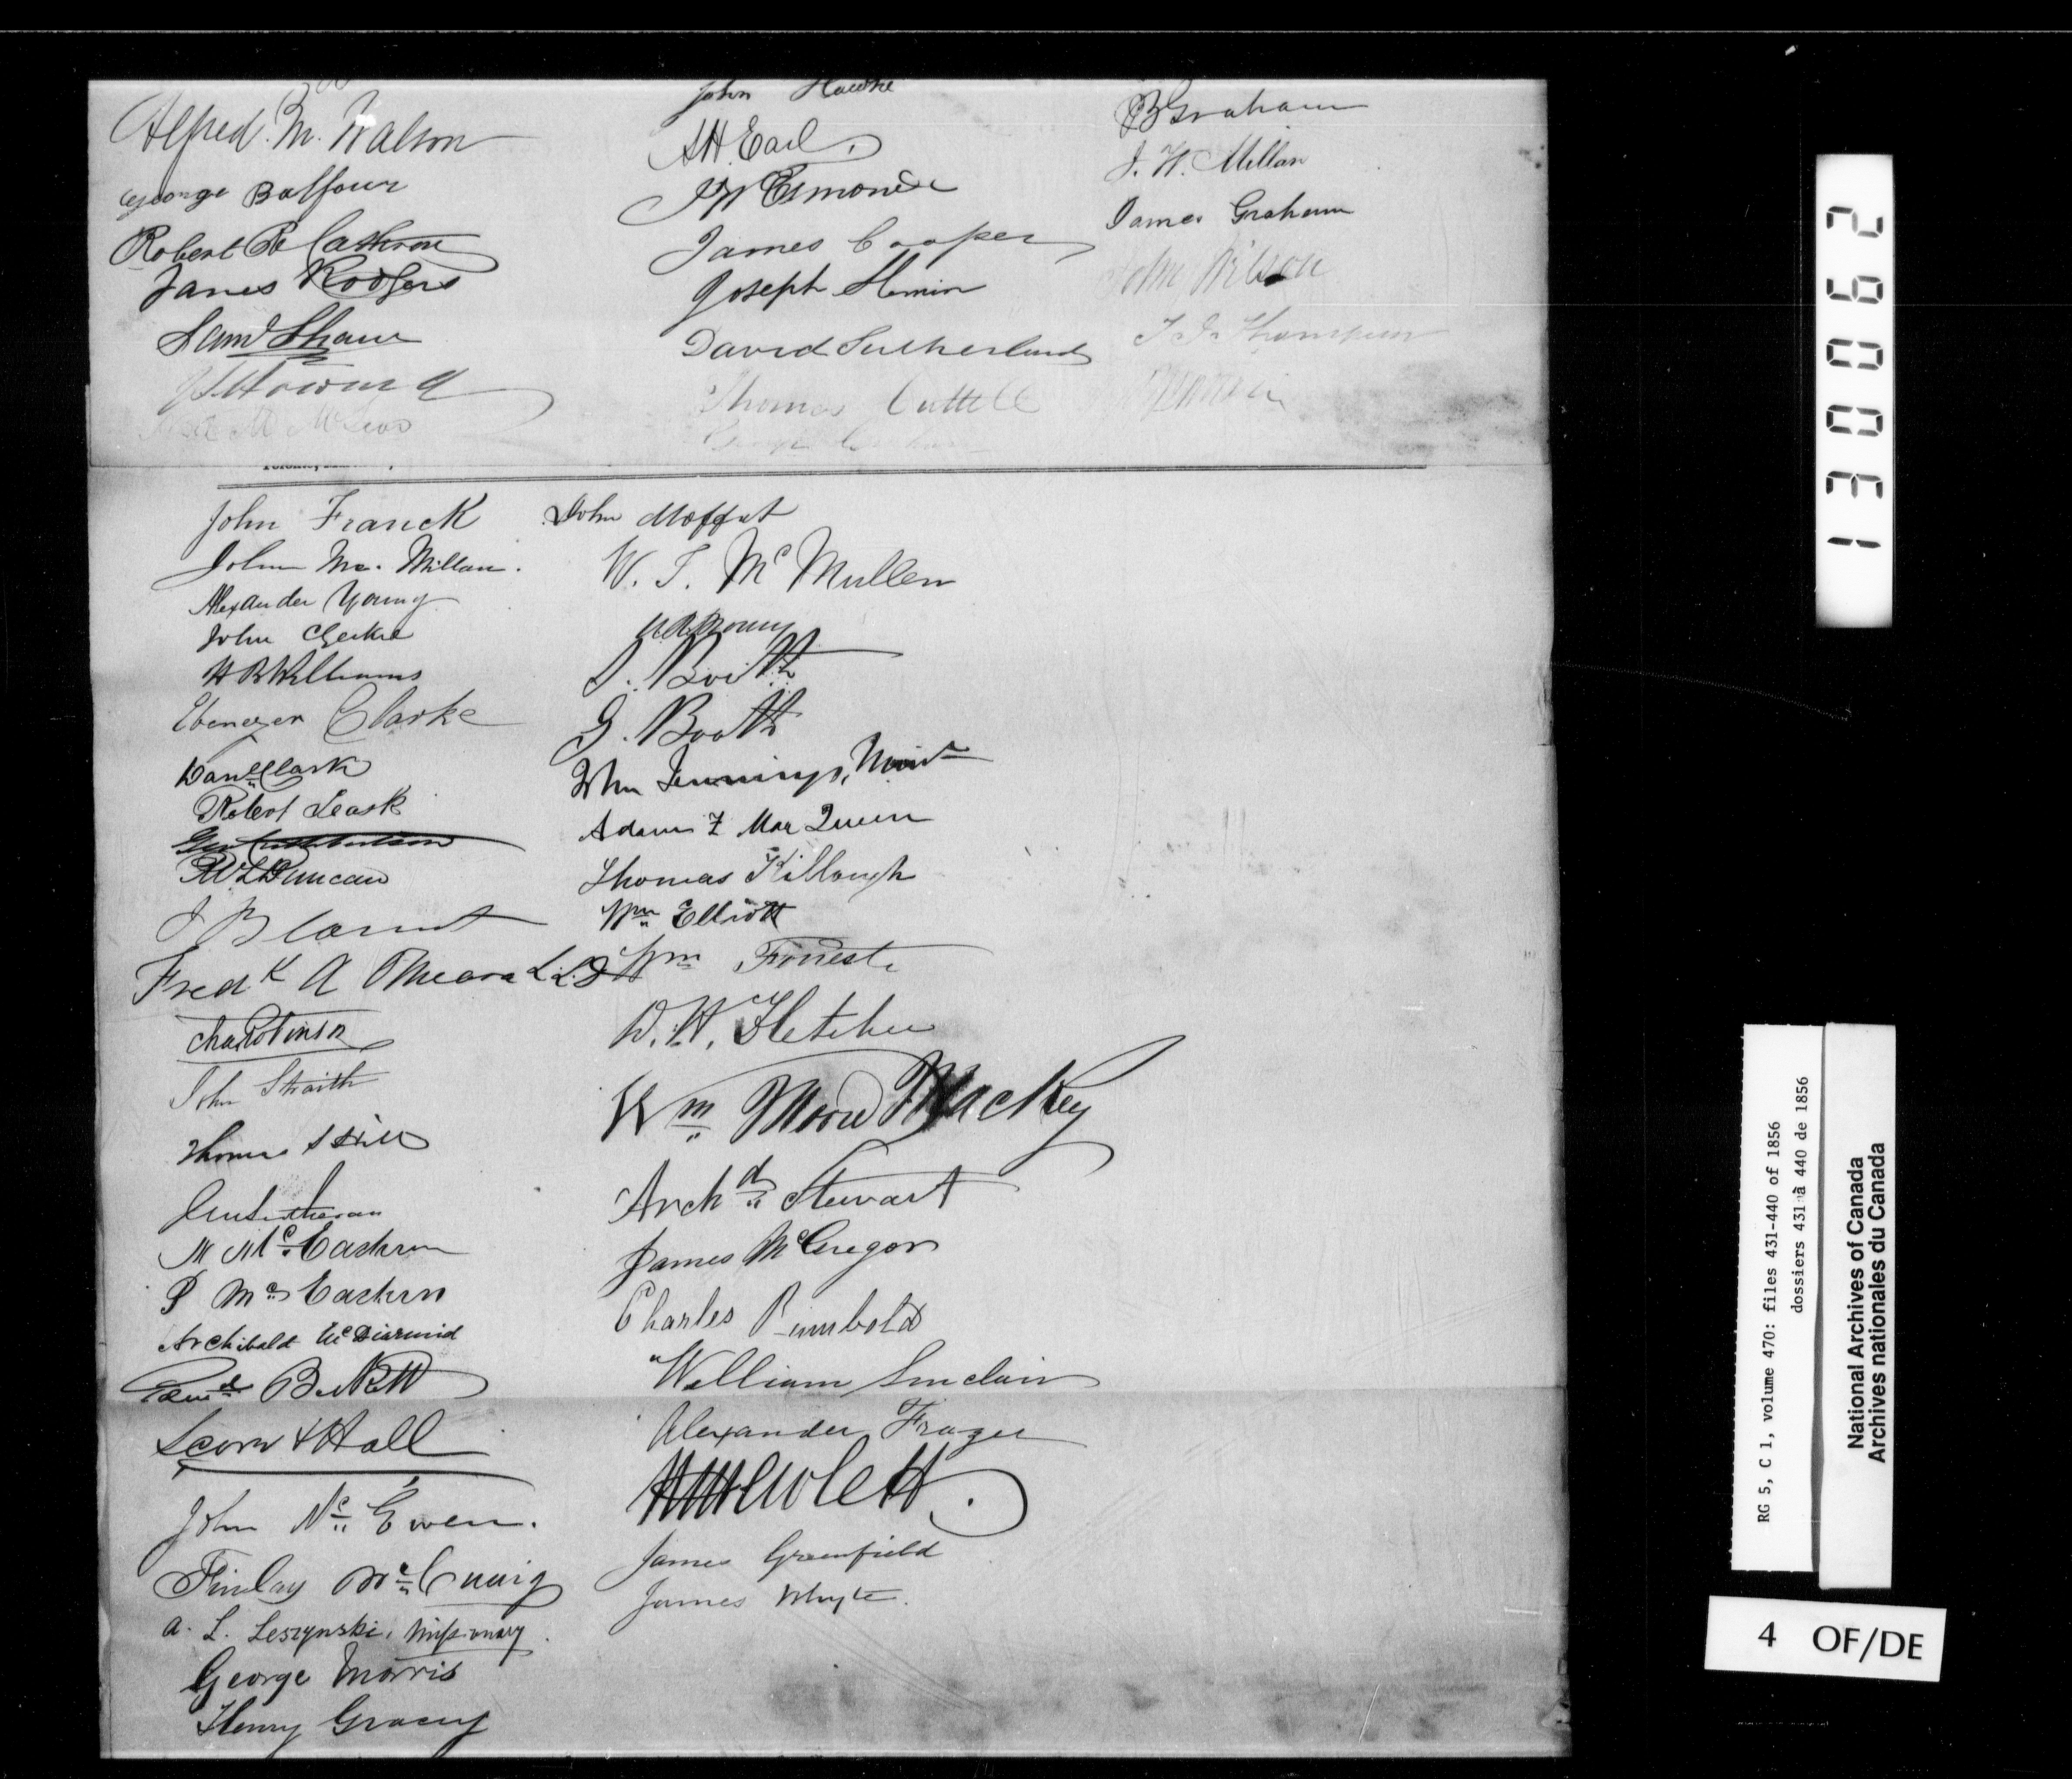 Alfred M. Watson
George Balfour
Robert R Cathron
James Rodgers
Saml Shaw
J S Howard
McLeod
John Hawke
A H Earl.
J W Esmonde
James Cooper
Joseph
David Sutherland
Thomas Cuttell
B Graham
J. W. Millar
James Graham
John Wilson
Thompson
John Franck
John Mc. Millan.
Alexander Young
John
H B Williams
Ebenezer Clarke
Danl Clark
Robert Leask
Duncan
J B
Fredk A O'Meara LLD
Chas Robinson
John Straith
Thomas S Hill
M McEachren
P McEachren
Archibald McDiarmid
Beckett
& Hall
John McEwen.
Finlay McCuaig
A. L. Leszynski, Missionary.
George Morris
Henry Gracey
John Moffat
W. T. McMullen
Young
J. Booth
G. Booth
John Jennings, Minr
Adam F MacQueen
Thomas Killough
Wm Elliott
Wm Forrest
W. H. Fletcher
Wm Moore Mackey
Archd Stewart
James McGregor
Charles Rumbold
William Sinclair
Alexander Frazer
Hewlett.
James Greenfield
James Whyte.
130062
RG 5, C 1, volume 470: files 431-440 of 1856
dossiers 431 à 440 de 1856
National Archives of Canada
Archives nationales du Canada
4 OF/DE